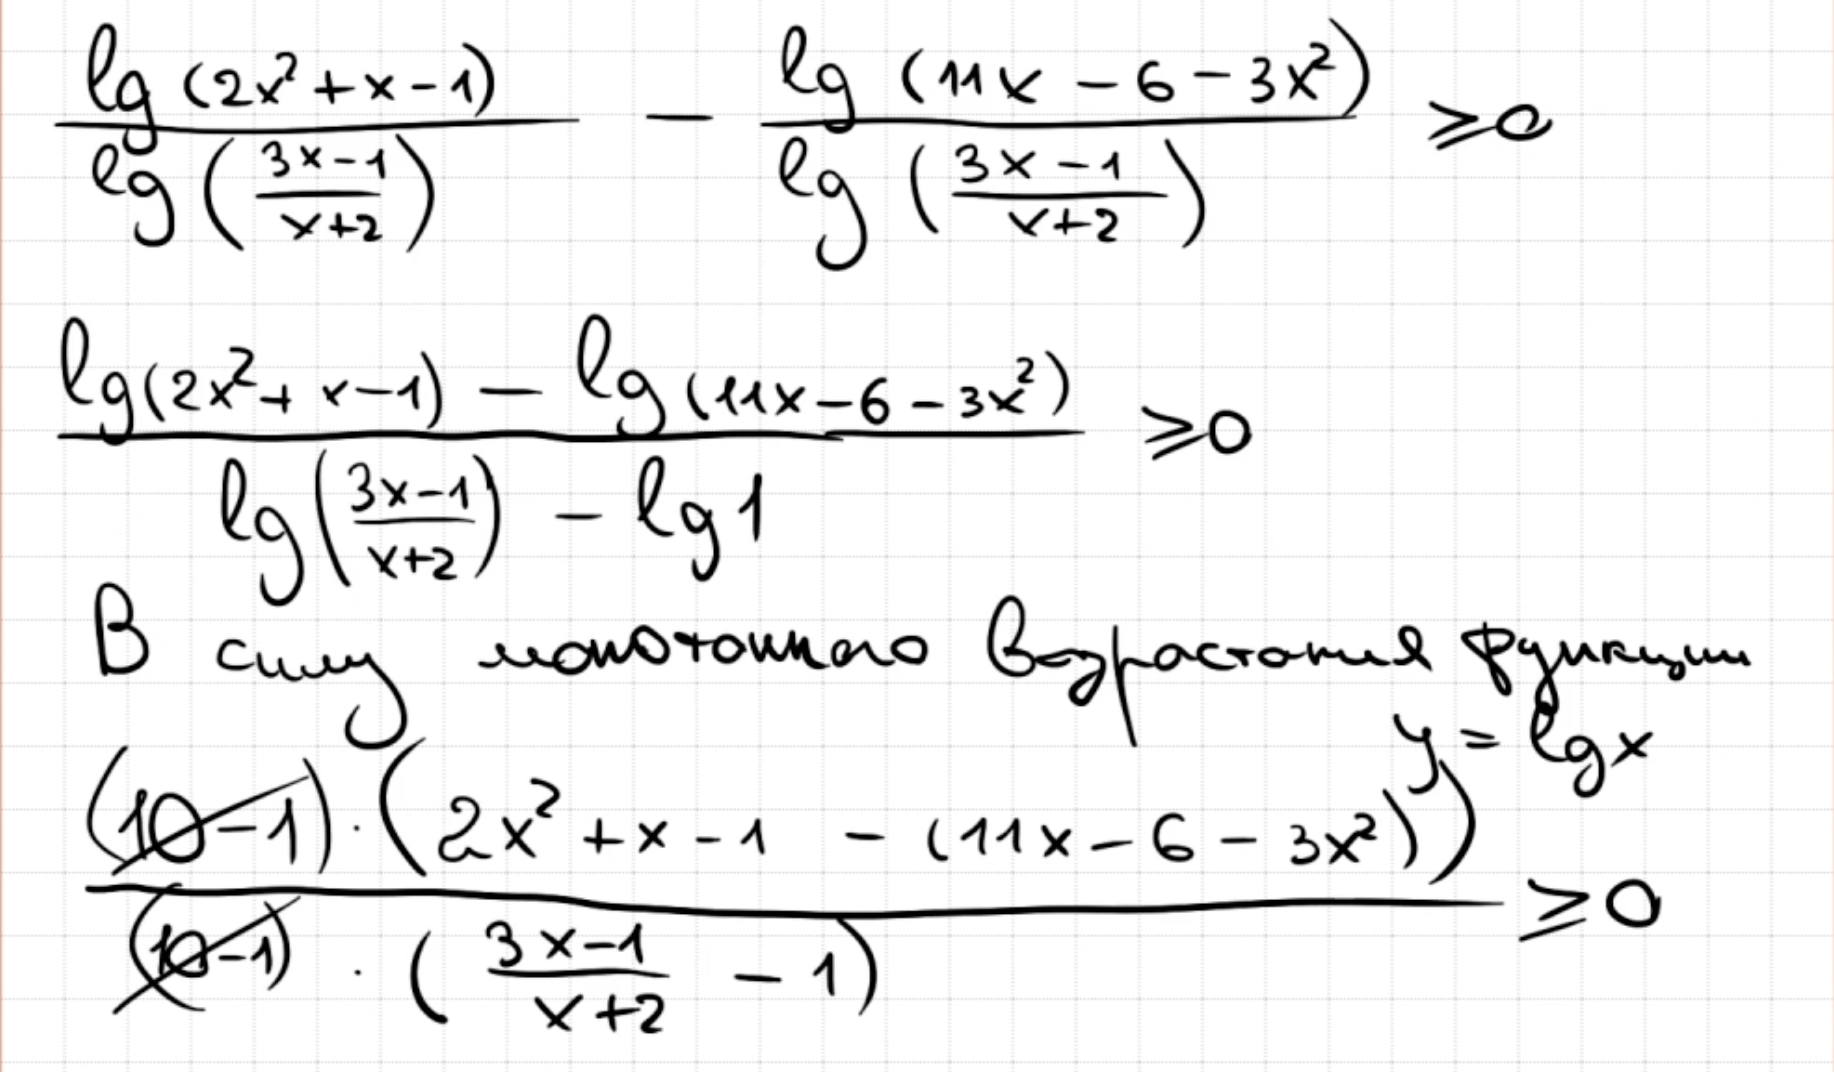 lg (2x² + x - 1) / lg ((3x - 1)/(x+2)) - lg (11x - 6 - 3x²) / lg ((3x - 1)/(x+2)) ⩾ 0
(lg (2x² + x - 1) - lg (11x - 6 - 3x²)) / (lg ((3x - 1)/(x+2)) - lg 1) ⩾ 0
В силу монотонного возрастания функции
y = lg x
((10 - 1) · (2x² + x - 1 - (11x - 6 - 3x²))) / ((10 - 1) · ((3x - 1)/(x+2) - 1)) ⩾ 0